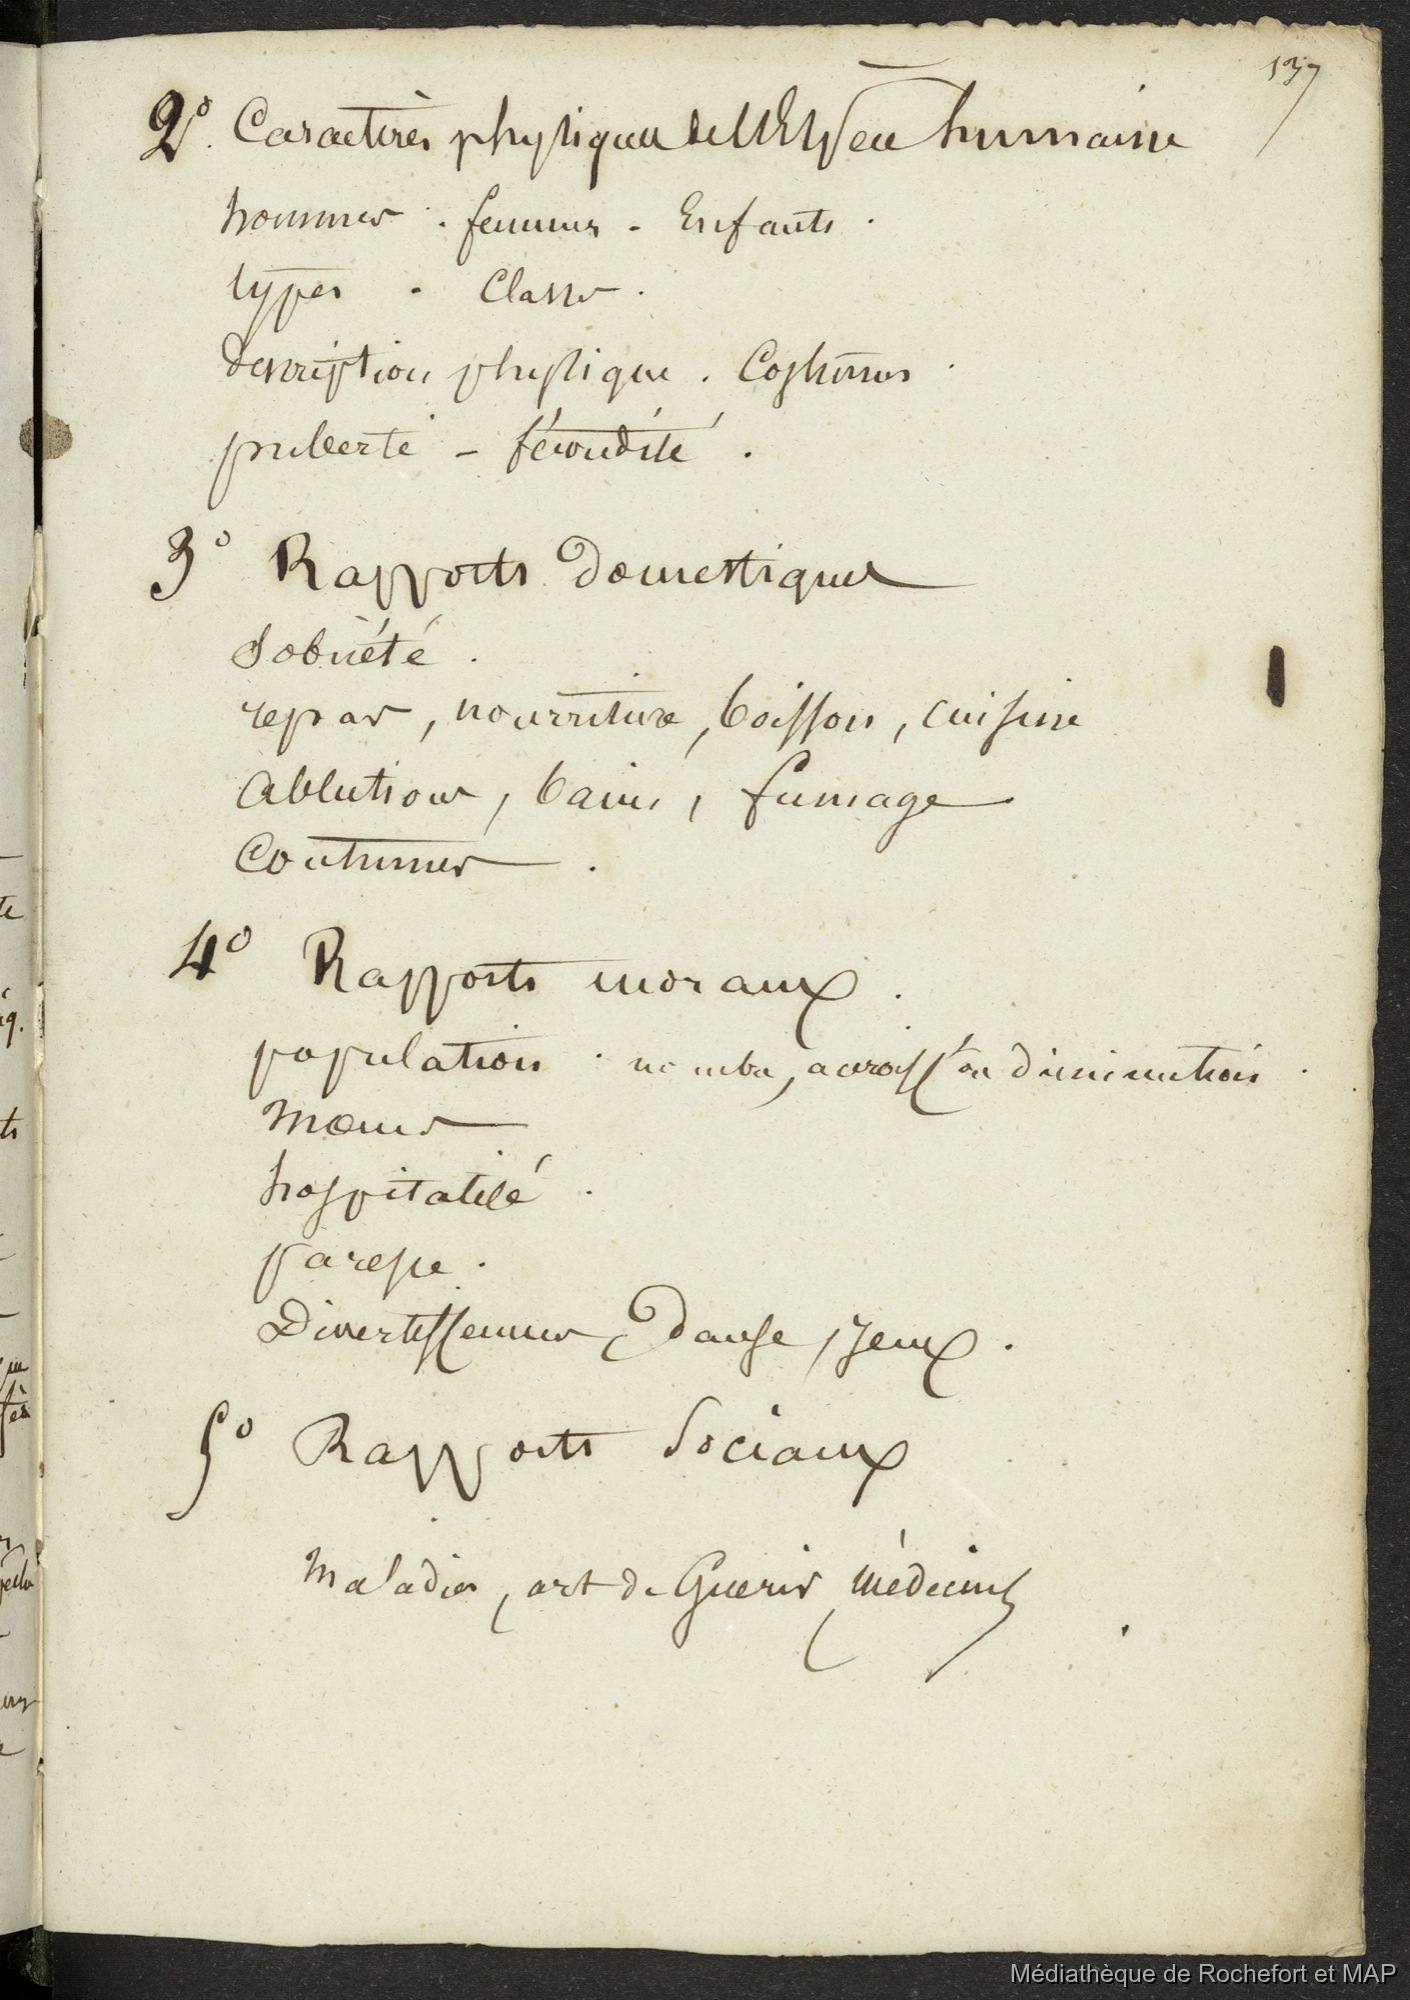 137
2º. Caractères physiques de l'Espèce humaine
hommes . femmes . Enfants .
types . Classes .
description physique . Costumes .
puberté – fécondité .
3º Rapports Domestiques
Sobriété .
repas, nourriture, boisson, cuisine
Ablutions, bains, fumage
Coutumes .
4º Rapports moraux .
population . nombre, accroisst ou Diminution .
Mœurs
hospitalité .
paresse .
Divertissemens, Danse, Jeux .
5º Rapports Sociaux
Maladies, art de Guérir, Médecins
Médiathèque de Rochefort et MAP